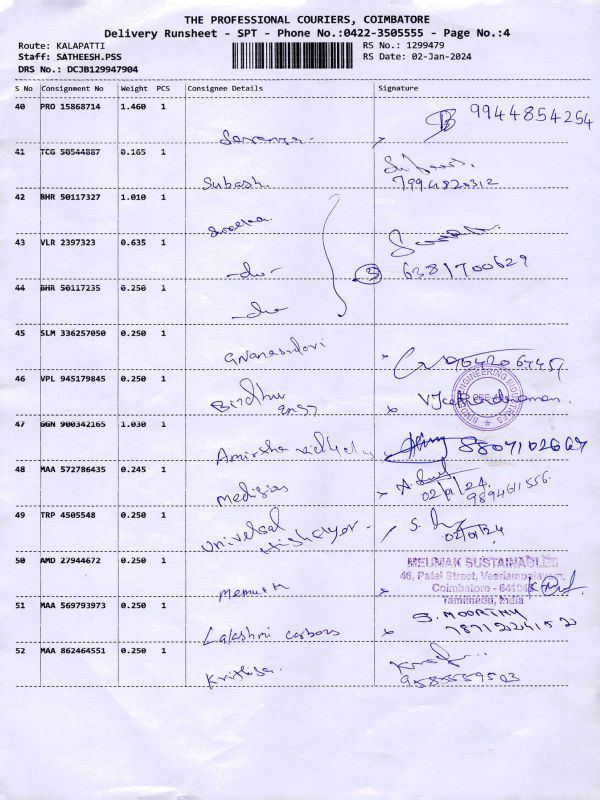 THE PROFESSIONAL COURIERS, COIMBATORE
Delivery Runsheet - SPT - Phone No.:0422-3505555 - Page No.:4
Route: KALAPATTI RS No.: 1299479
Staff: SATHEESH.PSS RS Date: 02-Jan-2024
DRS No.: DCJB129947904
S No Consignment No Weight PCS Consignee Details Signature
40 PRO 15868714 1.460 1
9944854254
41 TCG 50544887 0.165 1
Subash.
7994820312
42 BHR 50117327 1.010 1
43 VLR 2397323 0.635 1
-do- 3 6381700629
44 BHR 50117235 0.250 1
-do-
45 SLM 336257050 0.250 1
46 VPL 945179845 0.250 1
Bindhu
ENGINEERING INDUSTRIES
47 GGN 900342165 1.030 1
8807102667
48 MAA 572786435 0.245 1
02/01/24
9894611556
49 TRP 4505548 0.250 1
Universal
02/01/24
50 AMD 27944672 0.250 1
MEUMAK SUSTAINABLES
46, Patel Street, Veeriampalayam,
Coimbatore -
Tamilnadu, India
51 MAA 569793973 0.250 1
Lakshmi carbons S. MOORTHY
7871224152
52 MAA 862464551 0.250 1
9585559523